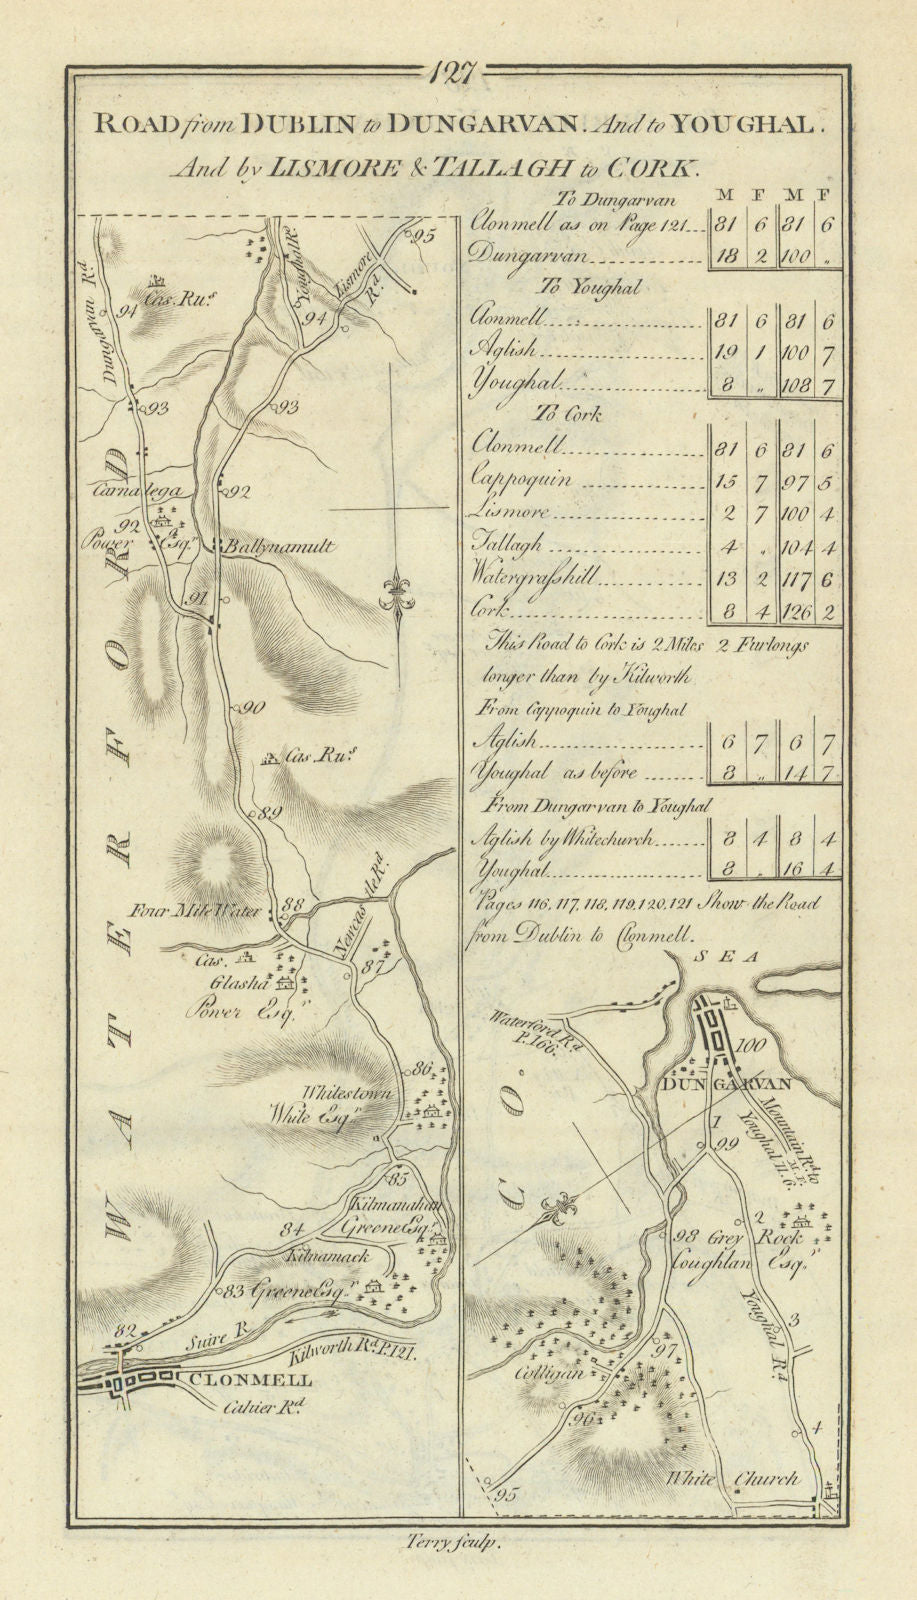 127
ROAD from DUBLIN to DUNGARVAN. And to YOUGHAL.
And by LISMORE & TALLAGH to CORK.
To Dungarvan M F M F
Clonmell as on Page 121 81 6 81 6
Dungarvan 18 2 100 „
To Youghal
Clonmell 81 6 81 6
Aglish 19 1 100 7
Youghal 8 „ 108 7
To Cork
Clonmell 81 6 81 6
Cappoquin 15 7 97 5
Lismore 2 7 100 4
Tallagh 4 „ 104 4
Watergrasshill 13 2 117 6
Cork 8 4 126 2
This Road to Cork is 2 Miles 2 Furlongs
longer than by Kilworth
From Cappoquin to Youghal
Aglish 6 7 6 7
Youghal as before 8 „ 14 7
From Dungarvan to Youghal
Aglish by Whitechurch 8 4 8 4
Youghal 8 „ 16 4
Pages 116, 117, 118, 119, 120, 121 Show the Road
from Dublin to Clonmell.
Dungarvan Rd
Cas. Rus
94
Youghal Rd
94
Lismore Rd
95
93
93
Carnalega
92
Power Esqr
92
Ballynamult
91
90
Cas. Rus
89
Four Mile Water
88
Newcastle Rd
87
Cas.
Glasha
Power Esqr
86
Whitestown
White Esqr
a
85
Kilmanahan
Greene Esqr
84
Kilnamack
83
Greene Esqr
82
Suire R.
Kilworth Rd P. 121.
CLONMELL
Cahier Rd
WATERFORD
SEA
Waterford Rd
P. 166.
100
DUNGARVAN
Mountain Rd to
M. F.
Youghal 11. 6.
CO.
1
99
2
98
Grey Rock
Coughlan Esqr
Youghal Rd
3
97
Colligan
96
4
95
White Church
Terry sculp.